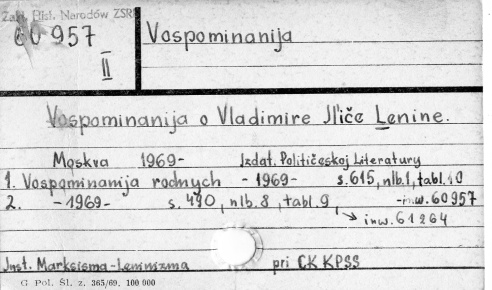 Zakł. Hist. Narodów ZSRR
60957
II
Vospominanija
Vospominanija o Vladimire Iliče Lenine.
Moskva 1969- Izdat. Političeskoj Literatury
1. Vospominanija rodnych - 1969- s. 615, nlb. 1, tabl. 10
2. -1969- s. 490, nlb. 8, tabl. 9, -inw. 60957
inw. 61264
Inst. Marksisma-Leninizma pri CK KPSS
C Pol. Śl. z. 365/69. 100 000